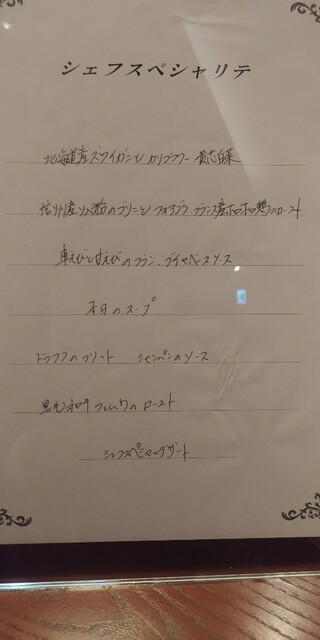 シェフスペシャリテ
北海道産ズワイガニと カリフラワー
信州産 粉のブリニと フォアグラ フランス産ホロホロ鶏のロースト
車えびと甘えびのフラン、ブイヤベースソース
本日のスープ
トラフグのフリット シャンパンのソース
黒毛和牛 フィレ肉の ロースト
シェフスペシャルデザート